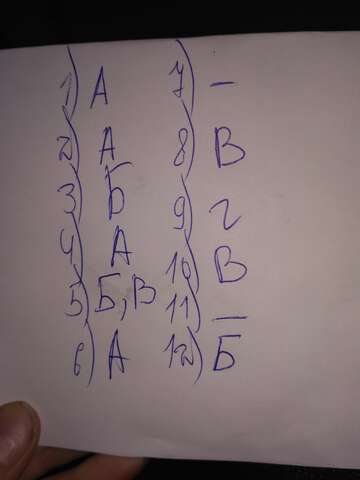 1) А
2) А
3) Б
4) А
5) Б, В
6) А
7) –
8) В
9) г
10) В
11) –
12) Б